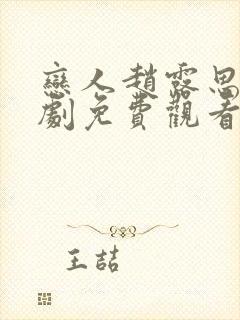 戀人趙露思
劇免費觀看
王喆